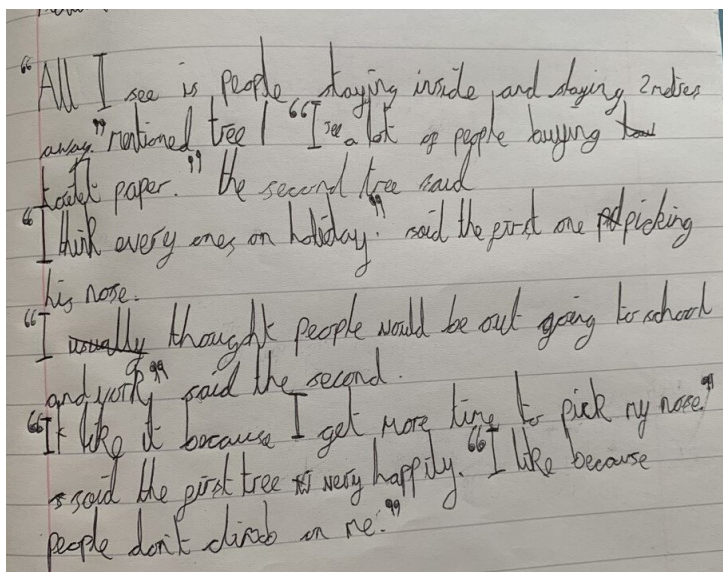 "All I see is people staying inside and staying 2 metres
away," mentioned tree 1 "I see a lot of people buying
toilet paper." the second tree said
"I think every ones on holiday." said the first one picking
his nose.
"I usually thought people would be out going to school
and work," said the second.
"It like it because I get more time to pick my nose."
said the first tree very happily. "I like because
people don't climb on me."